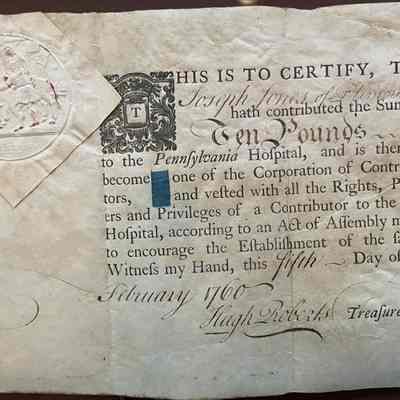 THIS IS TO CERTIFY, T
Joseph Jones of
hath contributed the Sum
Ten Pounds
to the Pennsylvania Hospital, and is ther
become one of the Corporation of Contr
tors, and vested with all the Rights, P
ers and Privileges of a Contributor to the
Hospital, according to an Act of Assembly m
to encourage the Establishment of the sa
Witness my Hand, this fifth Day of
February 1760
Hugh Roberts Treasure